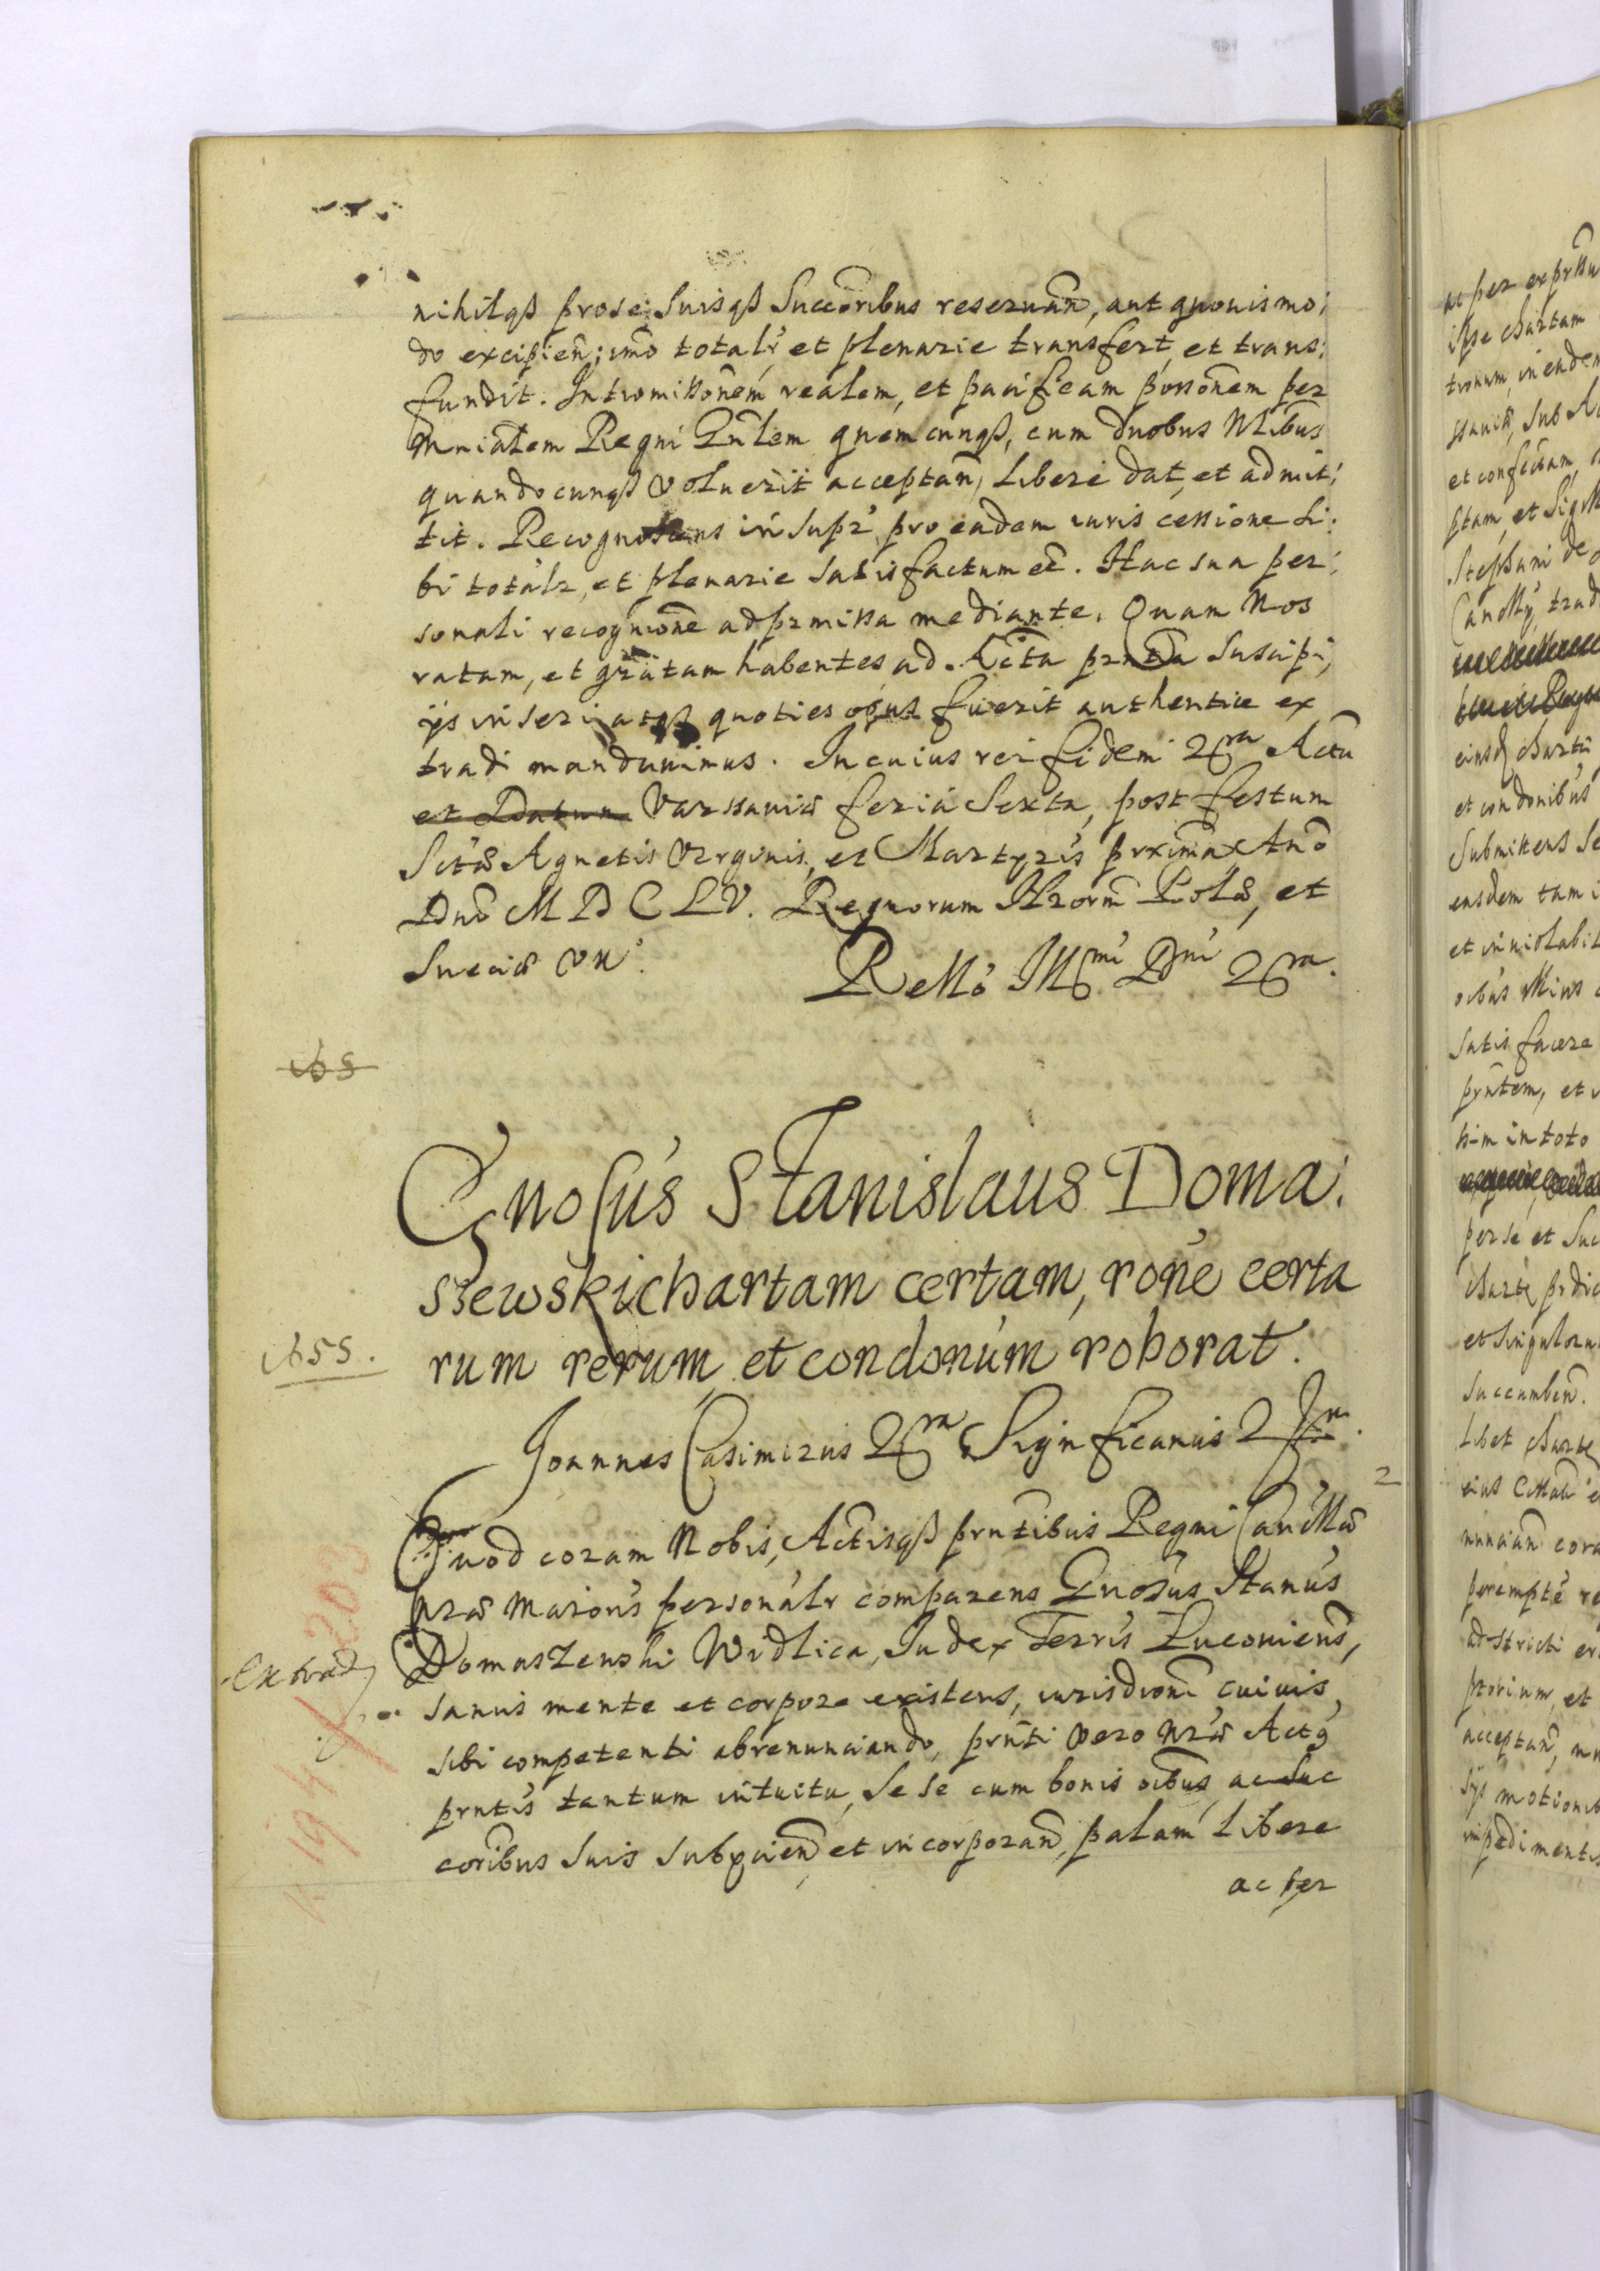 nihilqß pro se, Suisqß Succoribus reseruan̄, aut quouis mo:
do excipien̄; imo totalr̄ et plenarie transfert, et trans:
fundit. Intromissonem realem, et pacificam possonem per
Mnrialem Regni Gnlem quemcunqß, cum duobus Nlibus
quandocunqß voluerit acceptan̄, Libere dat, et admit:
tit. Recognoscens insupr̄ pro eadem iuris cessione Si:
bi totalr, et plenarie Satisfactum eē. Hac sua per:
sonali recognione ad prmissa mediante. Quam Nos
ratam, et gratam habentes ad Acta prntia Suscipi,
ijs inseri, atqß quoties opus fuerit authentice ex
tradi mandauimus. In cuius rei fidem 2ra Actu
et Datum Varssauiæ feria Sexta, post festum
Sctæ Agnetis Virginis, et Martyris prxima Ano
Dni M D C L V. Regnorum Nrorm Polæ, et
Sueciæ VII.
Rello Illmi Dni 2ra.
155
Gnosus Stanislaus Doma:
szewski chartam certam, rone certa
rum rerum et condonum roborat.
155.
Joannes Casimirus 2ra Significamus 2
2
Quod coram Nobis, Actisqß prntibus Regni Cancllæ
nræ Maioris personalr comparens Gnosus Stanus
Domaszewski Widlica, Judex Terris Lucouiens,
Extrad
sanus mente et corpore existens, iurisdioni cuiuis,
sibi competenti abrenunciando, prnti vero nræ Actq
prntis tantum intuitu, Se se cum bonis oibus ac Suc
coribus Suis Subycien̄ et incorporan̄, palam Libere
ac per